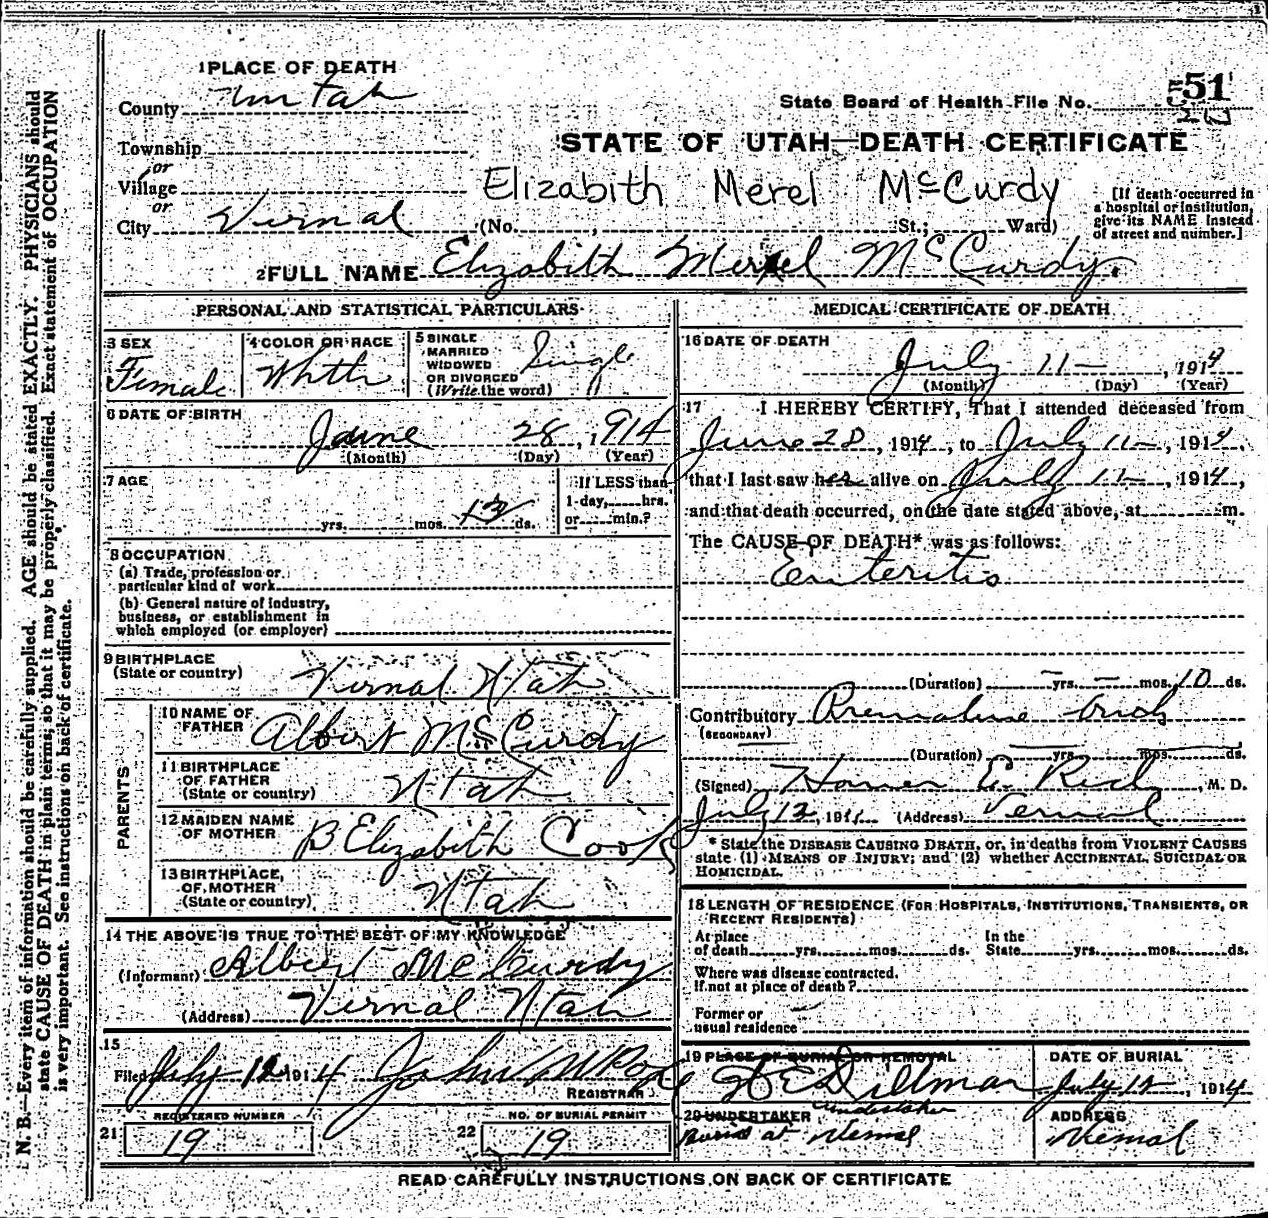 1 PLACE OF DEATH
County
State Board of Health File No. 551
STATE OF UTAH—DEATH CERTIFICATE
Township
or
Village
Elizabith Merel McCurdy
or
City Vernal (No. , St.; Ward)
[If death occurred in
a hospital or institution,
give its NAME instead
of street and number.]
2 FULL NAME Elizabith Merel McCurdy.
PERSONAL AND STATISTICAL PARTICULARS
3 SEX
Female
4 COLOR OR RACE
White
5 SINGLE
MARRIED
WIDOWED
OR DIVORCED
(Write the word)
Single
6 DATE OF BIRTH
June 28, 1914
(Month) (Day) (Year)
7 AGE
yrs. mos. 13 ds.
If LESS than
1 day, hrs.
or min.?
8 OCCUPATION
(a) Trade, profession or
particular kind of work
(b) General nature of industry,
business, or establishment in
which employed (or employer)
9 BIRTHPLACE
(State or country)
Vernal Utah
PARENTS
10 NAME OF
FATHER
Albert McCurdy
11 BIRTHPLACE
OF FATHER
(State or country)
Utah
12 MAIDEN NAME
OF MOTHER
B Elizabith Cook
13 BIRTHPLACE,
OF MOTHER
(State or country)
Utah
14 THE ABOVE IS TRUE TO THE BEST OF MY KNOWLEDGE
(Informant) Albert McCurdy
(Address) Vernal Utah
15
Filed July 12 1914
REGISTRAR
REGISTERED NUMBER
21 19
NO. OF BURIAL PERMIT
22 19
MEDICAL CERTIFICATE OF DEATH
16 DATE OF DEATH
July 11, 1914
(Month) (Day) (Year)
17 I HEREBY CERTIFY, That I attended deceased from
June 28, 1914, to July 11, 1914,
that I last saw her alive on July 11, 1914,
and that death occurred, on the date stated above, at m.
The CAUSE OF DEATH* was as follows:
Enteritis
(Duration) — yrs. — mos. 10 ds.
Contributory Premature birth
(SECONDARY)
(Duration) yrs. mos. ds.
(Signed) Homer E. Rich, M. D.
July 12, 191 (Address) Vernal
* State the DISEASE CAUSING DEATH, or, in deaths from VIOLENT CAUSES
state (1) MEANS OF INJURY; and (2) whether ACCIDENTAL, SUICIDAL OR
HOMICIDAL.
18 LENGTH OF RESIDENCE (FOR HOSPITALS, INSTITUTIONS, TRANSIENTS, OR
RECENT RESIDENTS)
At place
of death yrs. mos. ds.
In the
State yrs. mos. ds.
Where was disease contracted.
If not at place of death?
Former or
usual residence
19 PLACE OF BURIAL OR REMOVAL
H E Dillman
DATE OF BURIAL
July 12, 1914
20 UNDERTAKER
undertaker
Buried at Vernal
ADDRESS
Vernal
READ CAREFULLY INSTRUCTIONS ON BACK OF CERTIFICATE
N. B.—Every item of information should be carefully supplied. AGE should be stated EXACTLY. PHYSICIANS should
state CAUSE OF DEATH in plain terms, so that it may be properly classified. Exact statement of OCCUPATION
is very important. See instructions on back of certificate.